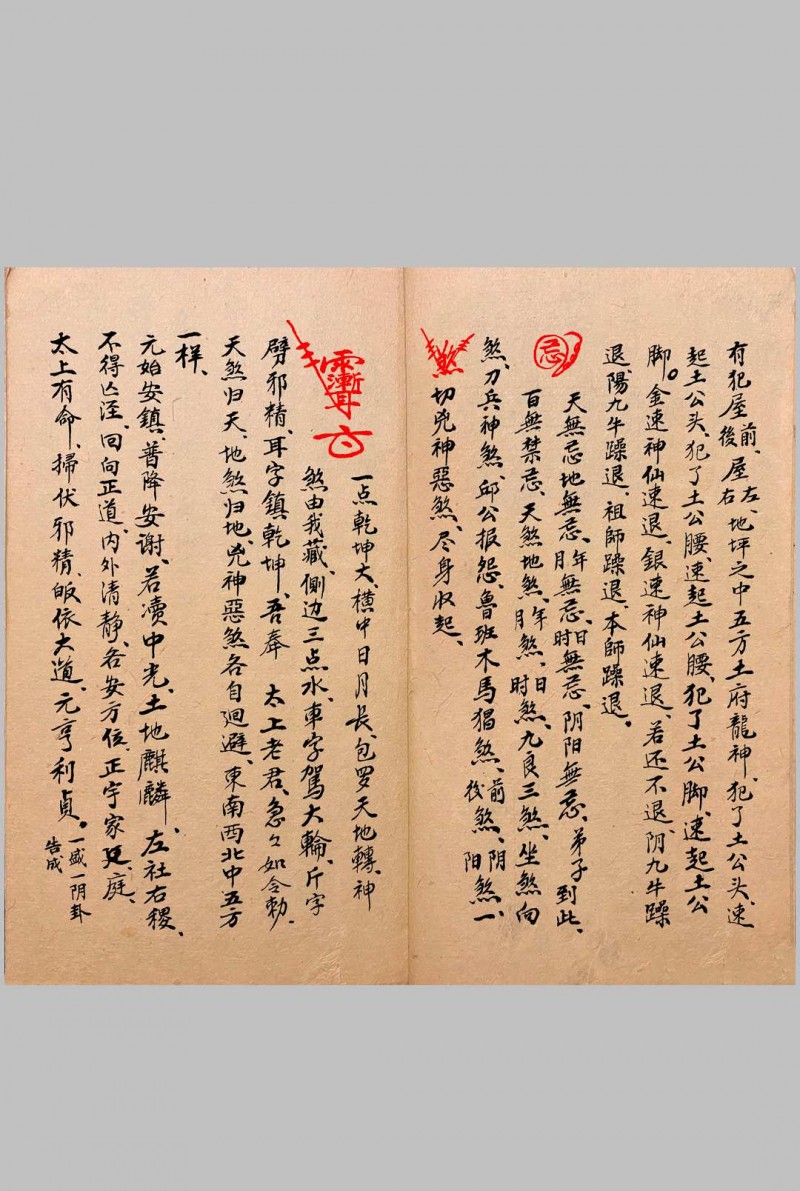 有犯屋前後、屋左右、地坪之中五方土府龍神、犯了土公头、速
起土公头、犯了土公腰、速起土公腰、犯了土公脚、速起土公
脚。金速神仙速退、銀速神仙速退、若还不退、阴九牛躁
退、陽九牛躁退、祖師躁退、本師躁退。
忌
天無忌地無忌、年月無忌、日时無忌、阴阳無忌、弟子到此、
百無禁忌、天煞地煞、年月煞、日时煞、九良三煞、坐煞向
煞、刀兵神煞、邱公报怨、魯班木馬猖煞、前後煞、阴阳煞一
煞
切兇神惡煞、尽身收起、
一点乾坤大、横中日月長、包罗天地轉、神
煞由我藏、側边三点水、車字駕大輪、斤字
劈邪精、耳字鎮乾坤、吾奉 太上老君、急々如令勅、
天煞归天、地煞归地、兇神惡煞各自廻避、東南西北中五方
一样、
元始安鎮、普降安谢、若凟中光、土地麒麟、左社右稷、
不得亾汪、回向正道、内外清靜、各安方位、正宇家廷、庭、
太上有命、掃伏邪精、皈依大道、元亨利貞。一盛一阴卦
告成